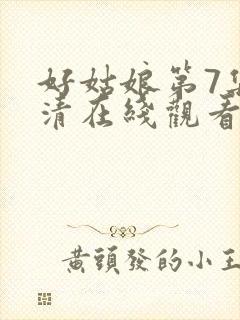 好姑娘第7集
清在綫觀看
黃頭發的小王